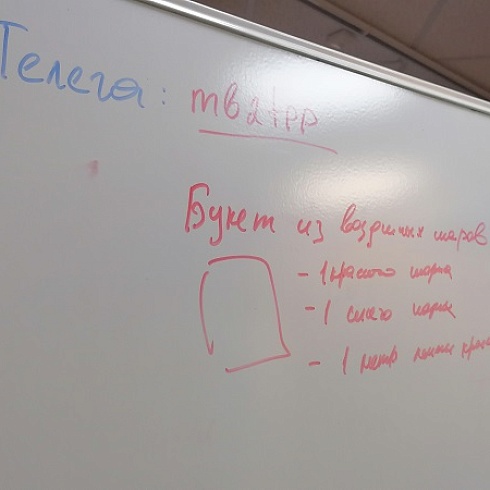 Телега: mb2tpp
Букет из воздушных шаров
- 1 красного шарика
- 1 синего шарика
- 1 метр ленты